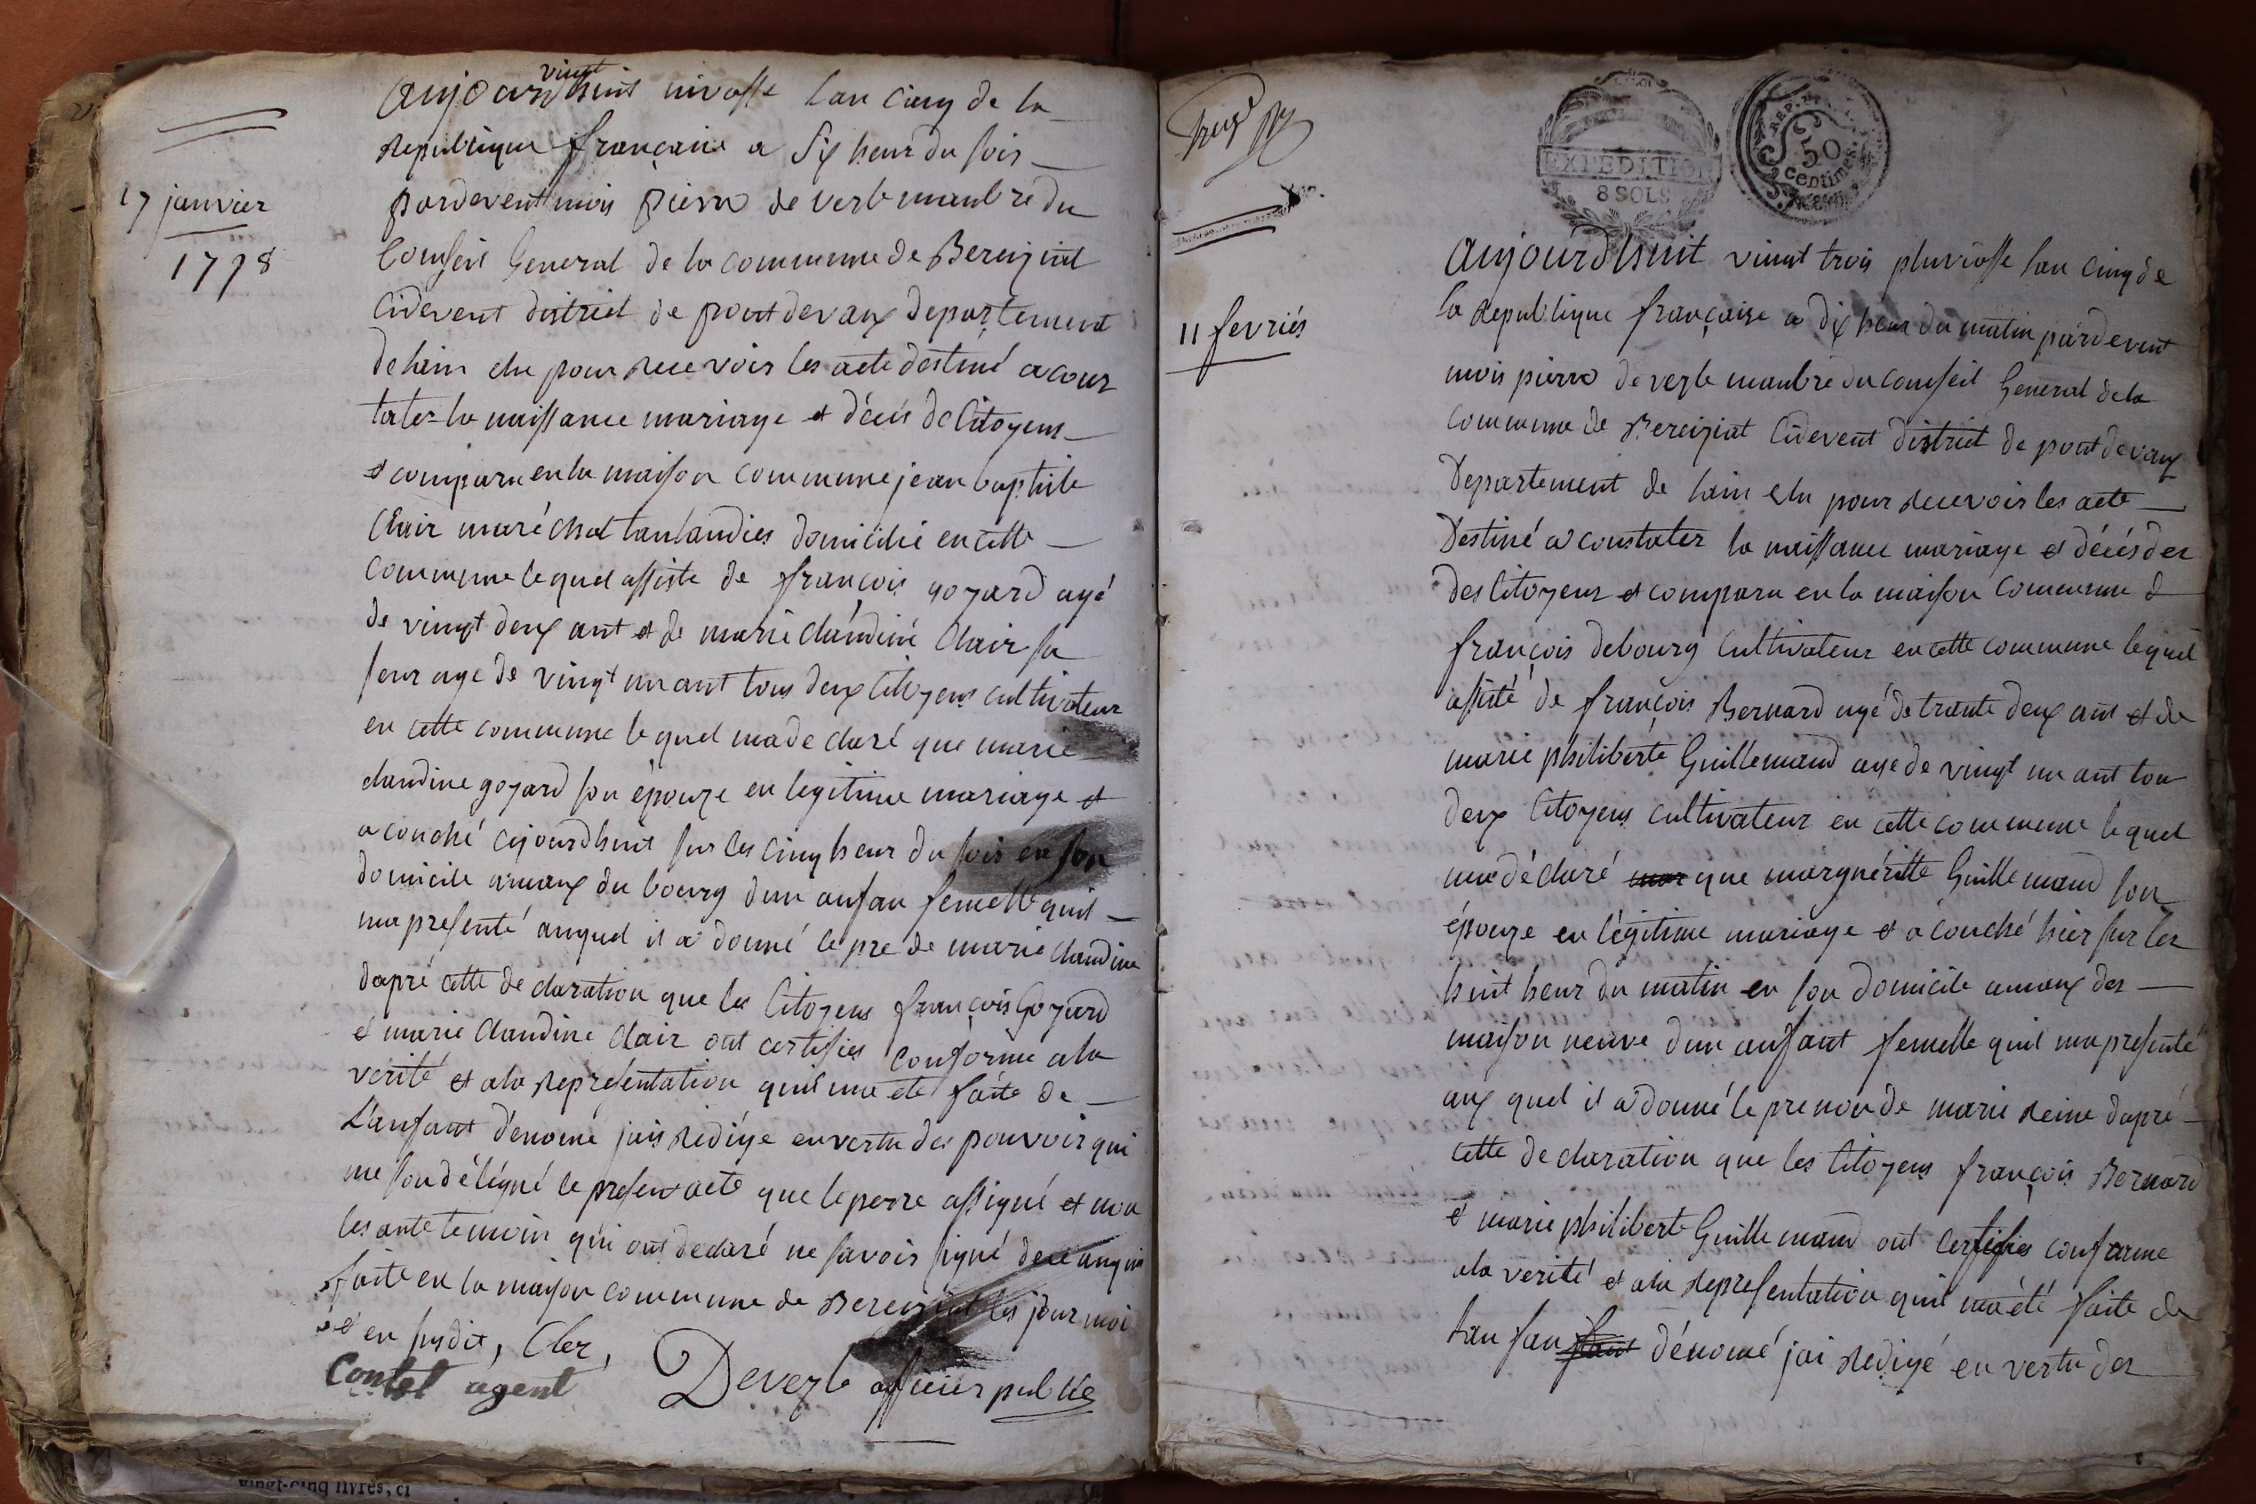 17 janvier
1798
vingt
aujourdhuit nivosse lan cinq de la
republique françaíse a six heur du soir
pardevent mois pierre de verle manbre du
Conseil General de la commune de Bereiziat
Cidevent district de pont devaux departement
de lain elu pour recevoir les acte destiné a cons
tater la naissance mariage et décés de Citoyens
et comparu en la maison commune jean baptiste
Clair maréchal domicilié en cette
commune lequel assiste de françois goyard agé
de vingt deux ant et de marie claudine Clair sa
seur age de vingt un ant tous deux Citoyens cultivateur
en cette commune lequel ma declaré que marie
claudine goyard son épouze en legitime mariage et
acouché cejourdhuit sur les cinq heur du soir en son
domicile amaux du bourg dun anfan femelle quil
ma presenté auquel il a donné le pre de marie claudine
dapré cette declaration que les Citoyens françois Goyard
et marie Claudine Clair ont certifies conforme a la
verité et ala representation quil ma eté faite de
L'anfant dénomé jais redige en vertu des pouvoir qui
me son délégné le presen acte que le perre assigné et non
les ante temoin qui ont declaré ne savoir signé
faite en la maison commune de Bereiziat les jour moi
et en susdit, Cler,
Contet agent Deverle officier publie
EXPEDITION
8 SOLS
REP.
50
centimes
11 fevriés
aujourdhuit vingt trois pluviosse lan cinq de
la republique française a dix heur du matin pardevent
mois pierre de verle manbre du conseil General de la
commune de Bereiziat Cidevent district de pont devaux
Departement de lain elu pour recevoir les acte
Destiné a constater la naissance mariage et décés des
des Citoyens et comparu en la maison commune d
françois debourg Cultivateur en cette commune lequel
assité de françois Bernard agé de trante deux ant et de
marie philiberte Guillemaud age de vingt un ant tou
deux Citoyens cultivateur en cette commune lequel
ma déclaré mar que marguéritte Guillemaud son
épouze en légitime mariage et acouché hier sur les
huit heur du matin en son domicile amaux des
maison neuve dun anfant femelle quil ma presenté
aux quel il a donné le prenon de marie reine dapré
cette declaration que les Citoyens françois Bernard
et marie philiberte Guillemaud ont certifies conforme
ala verité et ala representation quil ma été faite de
lan fan fant dénomé jai redigé en vertu des
vingt-cinq livres, ci